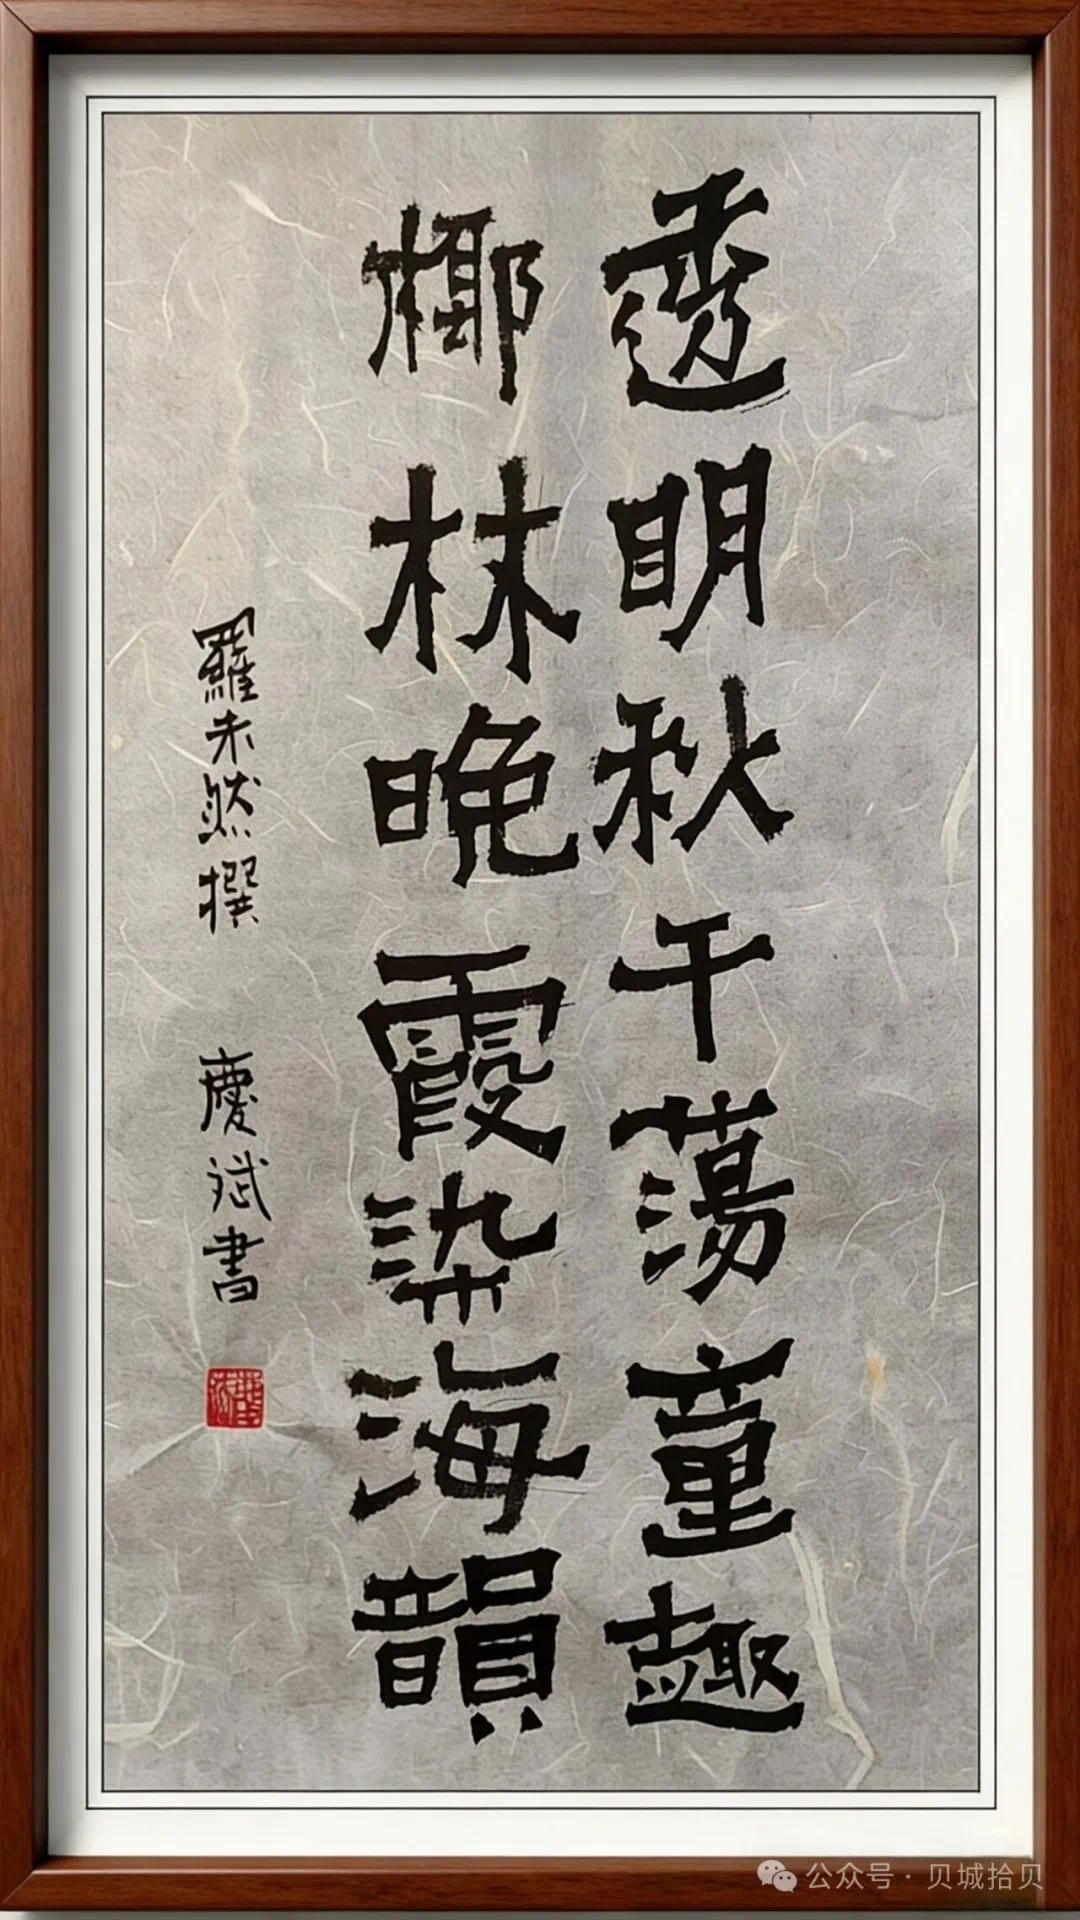 透明秋千蕩童趣
椰林晚霞染海韻
羅未然撰 慶斌書
公众号 · 贝城拾贝